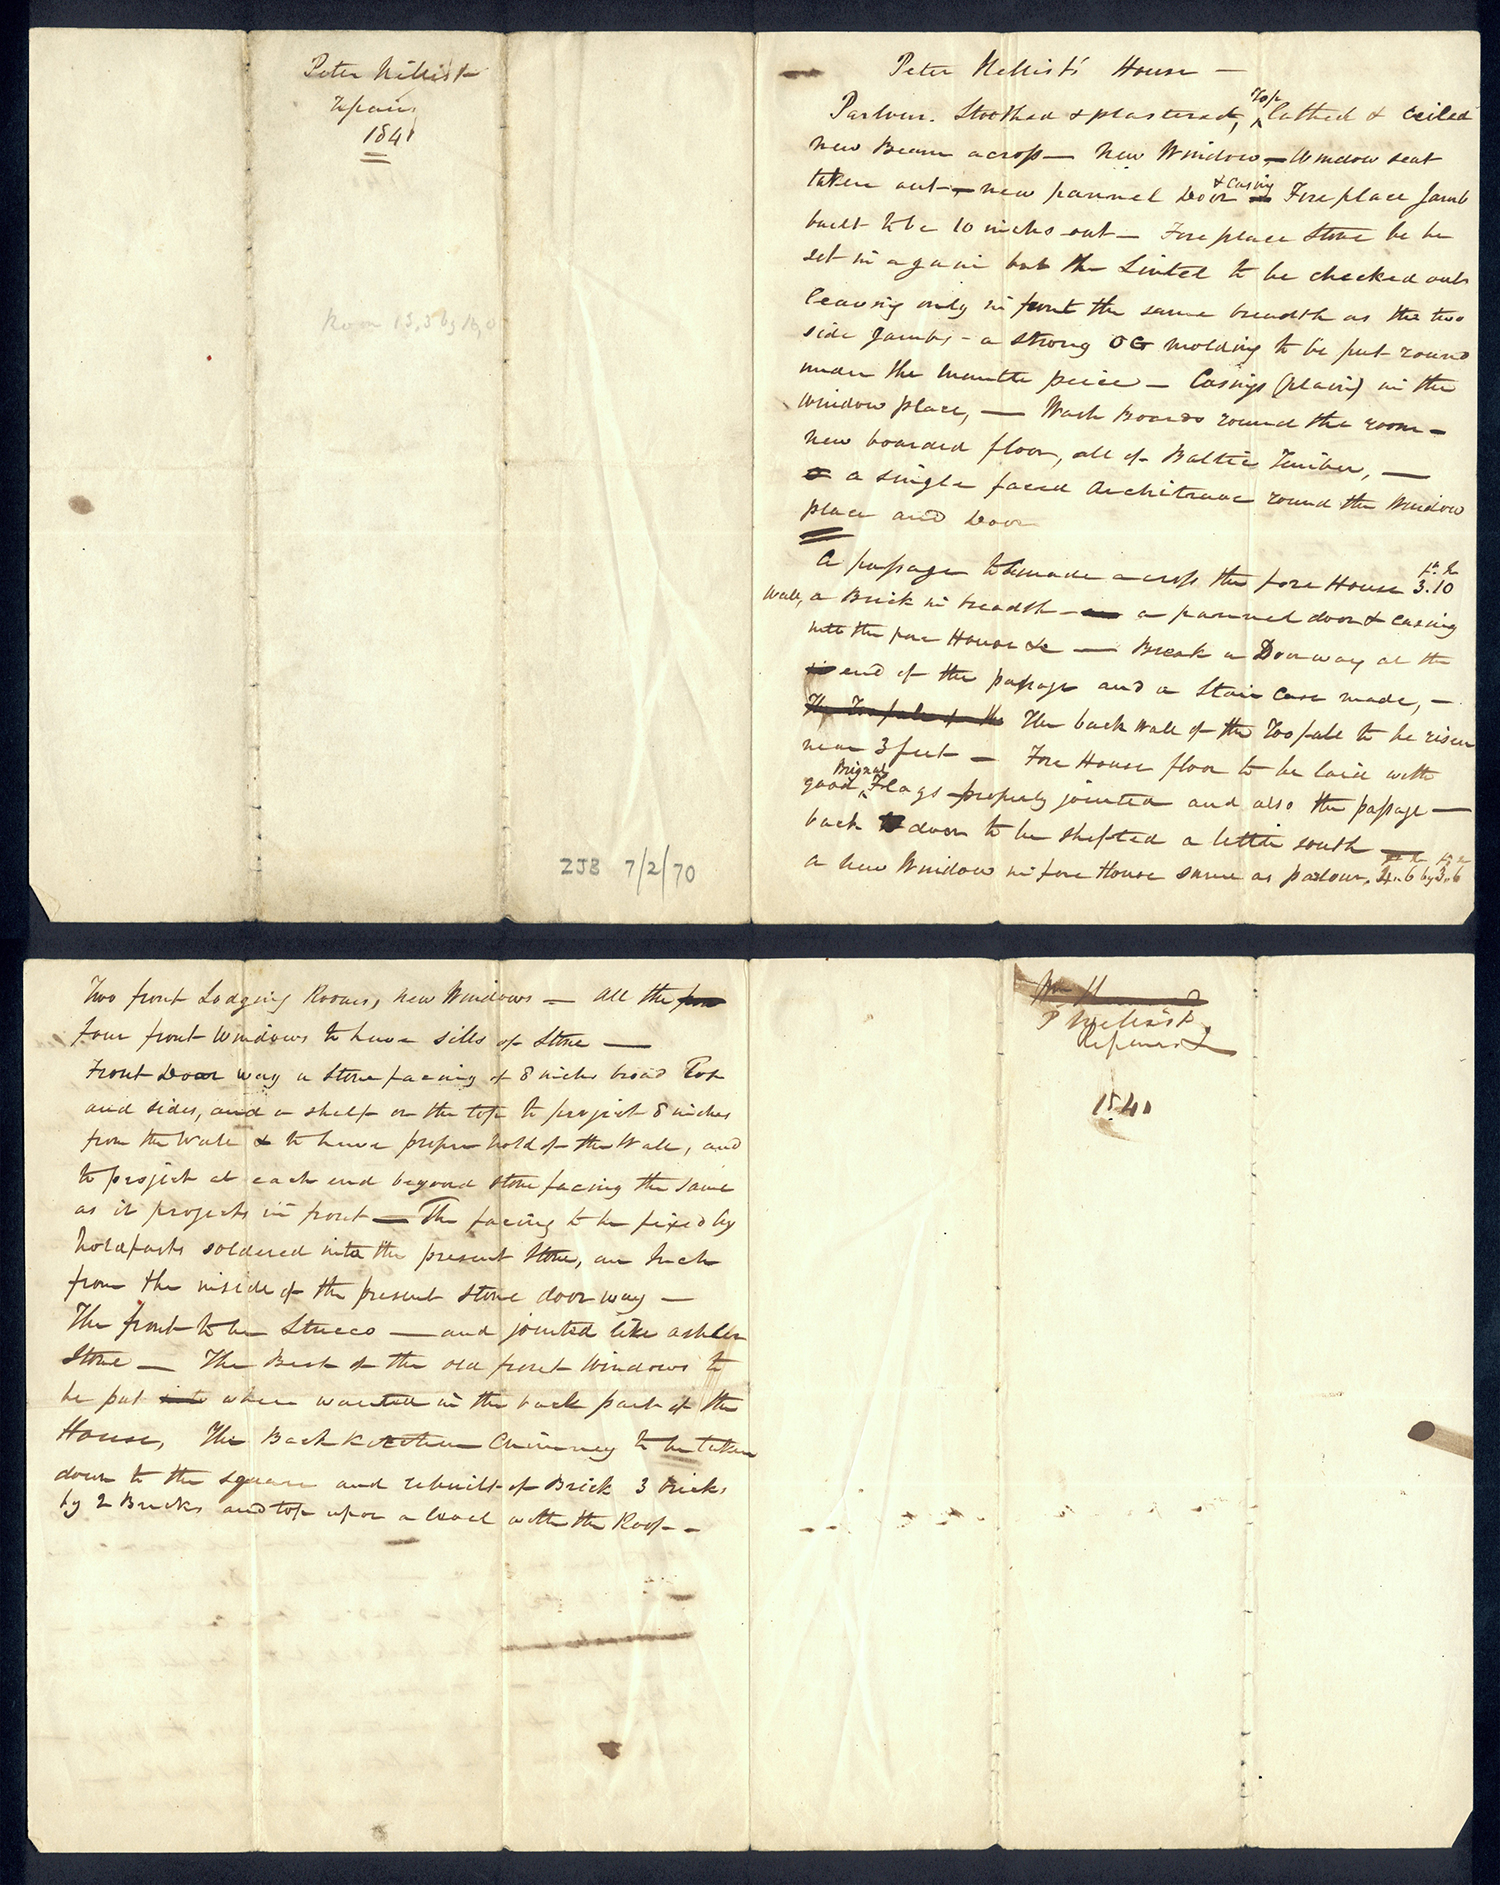 Peter Nellist
Repairs
1841
Room 13,3 by 16,0
ZJB 7/2/70
Peter Nellist's House —
Parlour. Stoothed & plastered, Top lathed & ceiled
new Beam across — New Window — Window seat
taken out — new pannel Door & Casing Fire place Jamb
built to be 10 inches out — Fire place Stone be be
set in again but the Lintel to be checked out
leaving only in front the same breadth as the two
side Jambs — a strong OG molding to be put round
under the mantle peice — Casings (plain) in the
window place, — Wash Boards round the room —
new boarded floor, all of Baltic Timber, —
a single faced Architrave round the Window
place and Door
A passage to be made across the fore House 3.10
Wall, a Brick in breadth — a pannel door & casing
into the fore House &c — Break a Doorway at the
end of the passage and a Stair Case made, —
The Toofall of the The back wall of the Toofall to be risen
near 3 feet — Fore House floor to be laid with
good Brignal Flags properly jointed and also the passage —
back door to be shifted a little south —
a new Window in fore House same as parlour, 4..6 by 3..6
Two front Lodging Rooms, new Windows — All the
four front Windows to have sills of Stone —
Front Door way a Stone facing of 8 inches broad Top
and sides, and a shelf on the top to project 8 inches
from the Wall & to have proper hold of the Wall, and
to project at each end beyond stone facing the same
as it projects in front — The facing to be fixed by
holdfasts soldered into the present Stone, an Inch
from the inside of the present Stone door way —
The front to be Stucco — and jointed like ashler
Stone — The Best of the old front Windows to
be put into where wanted in the back part of the
House, The Back Kitchen Chimney to be taken
down to the square and rebuilt of Brick 3 Bricks
by 2 Bricks and top upon a level with the Roof —
Wm H
P Nellist
Repairs
1841